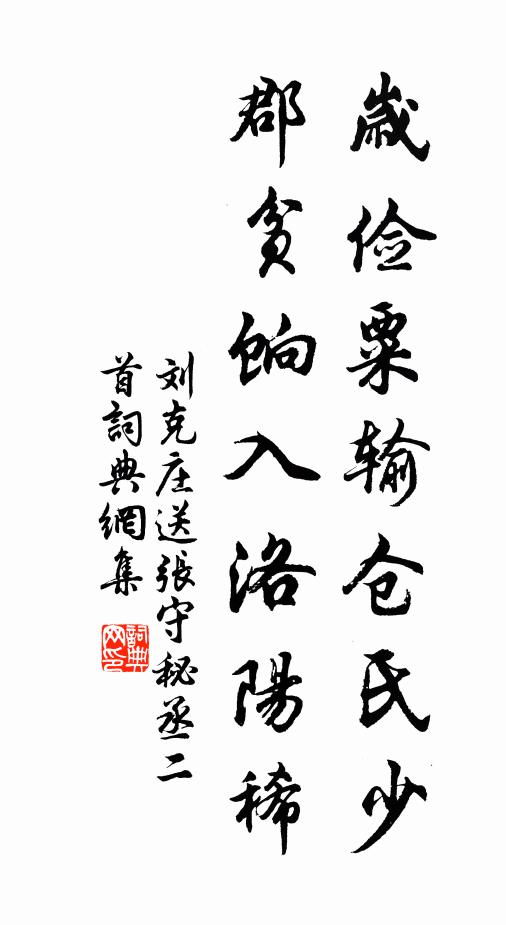 歲俭粟输仓氏少
郡貧餉入洛陽稀
刘克庄送張守秘丞二
首詞典網集
詞典
网印